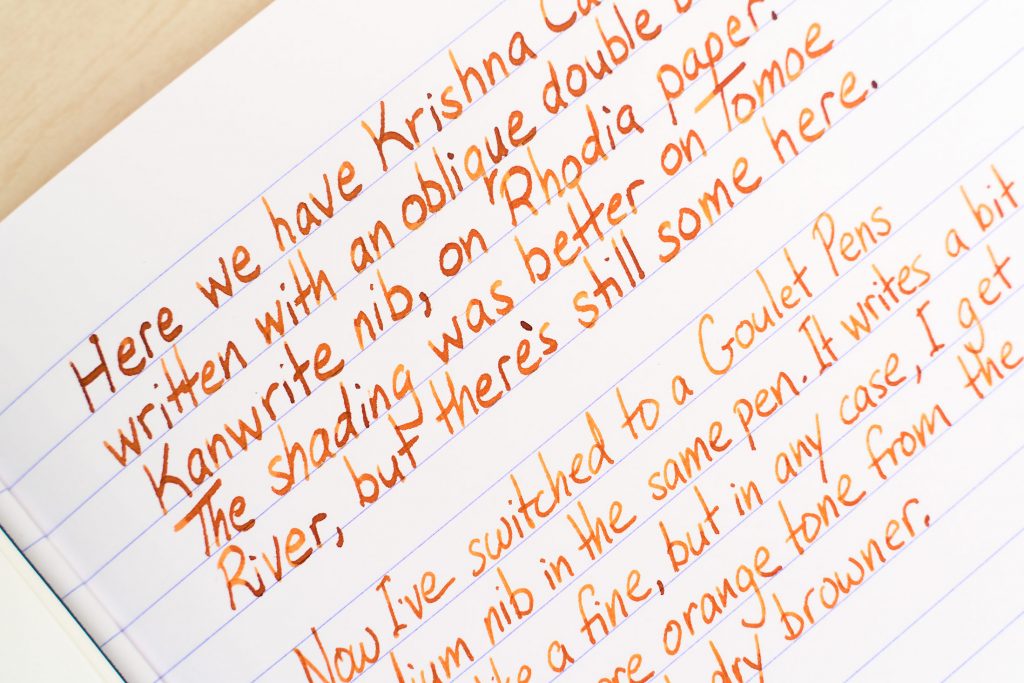 Here we have Krishna
written with an oblique double
Kanwrite nib, on Rhodia paper.
The shading was better on Tomoe
River, but there's still some here.
Now I've switched to a Goulet Pens
nib in the same pen. It writes a bit
a fine, but in any case, I get
orange tone from the
dry browner.